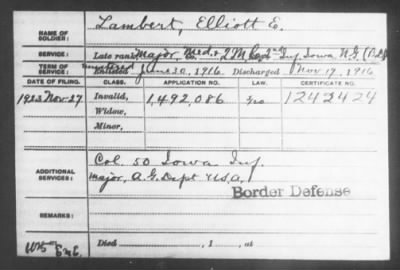 NAME OF SOLDIER: Lambert, Elliott E.
SERVICE: Late rank, Major, Med. & Q M Corps 2nd Inf. Iowa N.G.
TERM OF SERVICE: mustered Enlisted June 30, 1916. Discharged Nov. 17, 1916
DATE OF FILING. CLASS. APPLICATION NO. LAW. CERTIFICATE NO.
1923 Nov. 27 Invalid, 1,492,086 1242424
Widow,
Minor,
ADDITIONAL SERVICES: Col. 50 Iowa Inf.
Major, A.G. Dept U.S.A.
Border Defense
REMARKS:
Died , 1 , at